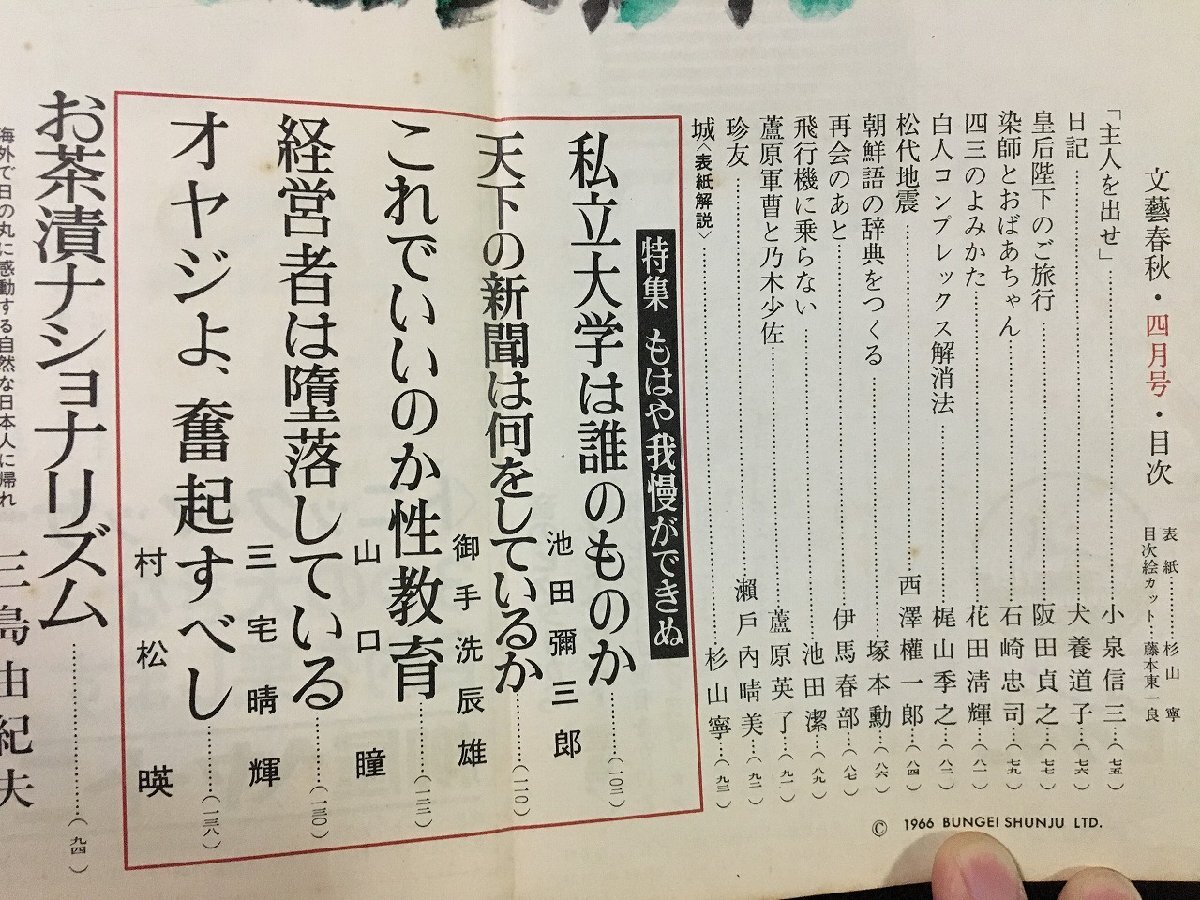 文藝春秋・四月号・目次
表紙……杉山寧
目次絵カット…藤本東一良
「主人を出せ」……小泉信三（七五）
日記……犬養道子（七六）
皇后陛下のご旅行……阪田貞之（七七）
染師とおばあちゃん……石崎忠司（七九）
四三のよみかた……花田清輝（八一）
白人コンプレックス解消法……梶山季之（八二）
松代地震……西澤權一郎（八四）
朝鮮語の辞典をつくる……塚本勳（八六）
再会のあと……伊馬春部（八七）
飛行機に乗らない……池田潔（八九）
蘆原軍曹と乃木少佐……蘆原英了（九一）
珍友……瀬戸内晴美（九二）
城〈表紙解説〉……杉山寧（九三）
特集 もはや我慢ができぬ
私立大学は誰のものか……（一〇二）
池田彌三郎
天下の新聞は何をしているか……（一一〇）
御手洗辰雄
これでいいのか性教育……（一二二）
山口瞳
経営者は堕落している……（一三〇）
三宅晴輝
オヤジよ、奮起すべし……（一三八）
村松暎
お茶漬ナショナリズム……（九四）
海外で日の丸に感動する自然な日本人に帰れ
三島由紀夫
© 1966 BUNGEI SHUNJU LTD.